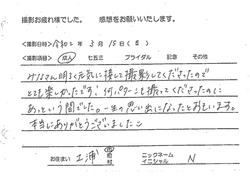 撮影お疲れ様でした。 感想をお願いいたします。
撮影日時 令和2年3月15日(日)
撮影項目 成人 七五三 ブライダル 記念 その他
みなさん明るく元気に接して撮影してくださったので
とても楽しかったです。何パターンも撮ってくださったのに
あっという間でした。一生の思い出になったと思います。
本当にありがとうございました
お住まい 土浦 市 町村 ニックネーム イニシャル N